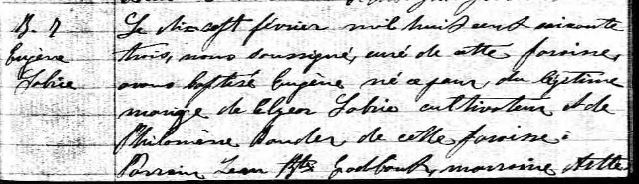 B. 7
Eugène
Sobrie
Le dix-sept février mil huit cent soixante
trois, nous soussigné, curé de cette paroisse,
avons baptisé Eugène né ce jour, du légitime
mariage de Elzear Sobrie cultivateur et de
Philomène de cette paroisse.
Parrain Jean Bte Godbout, marraine